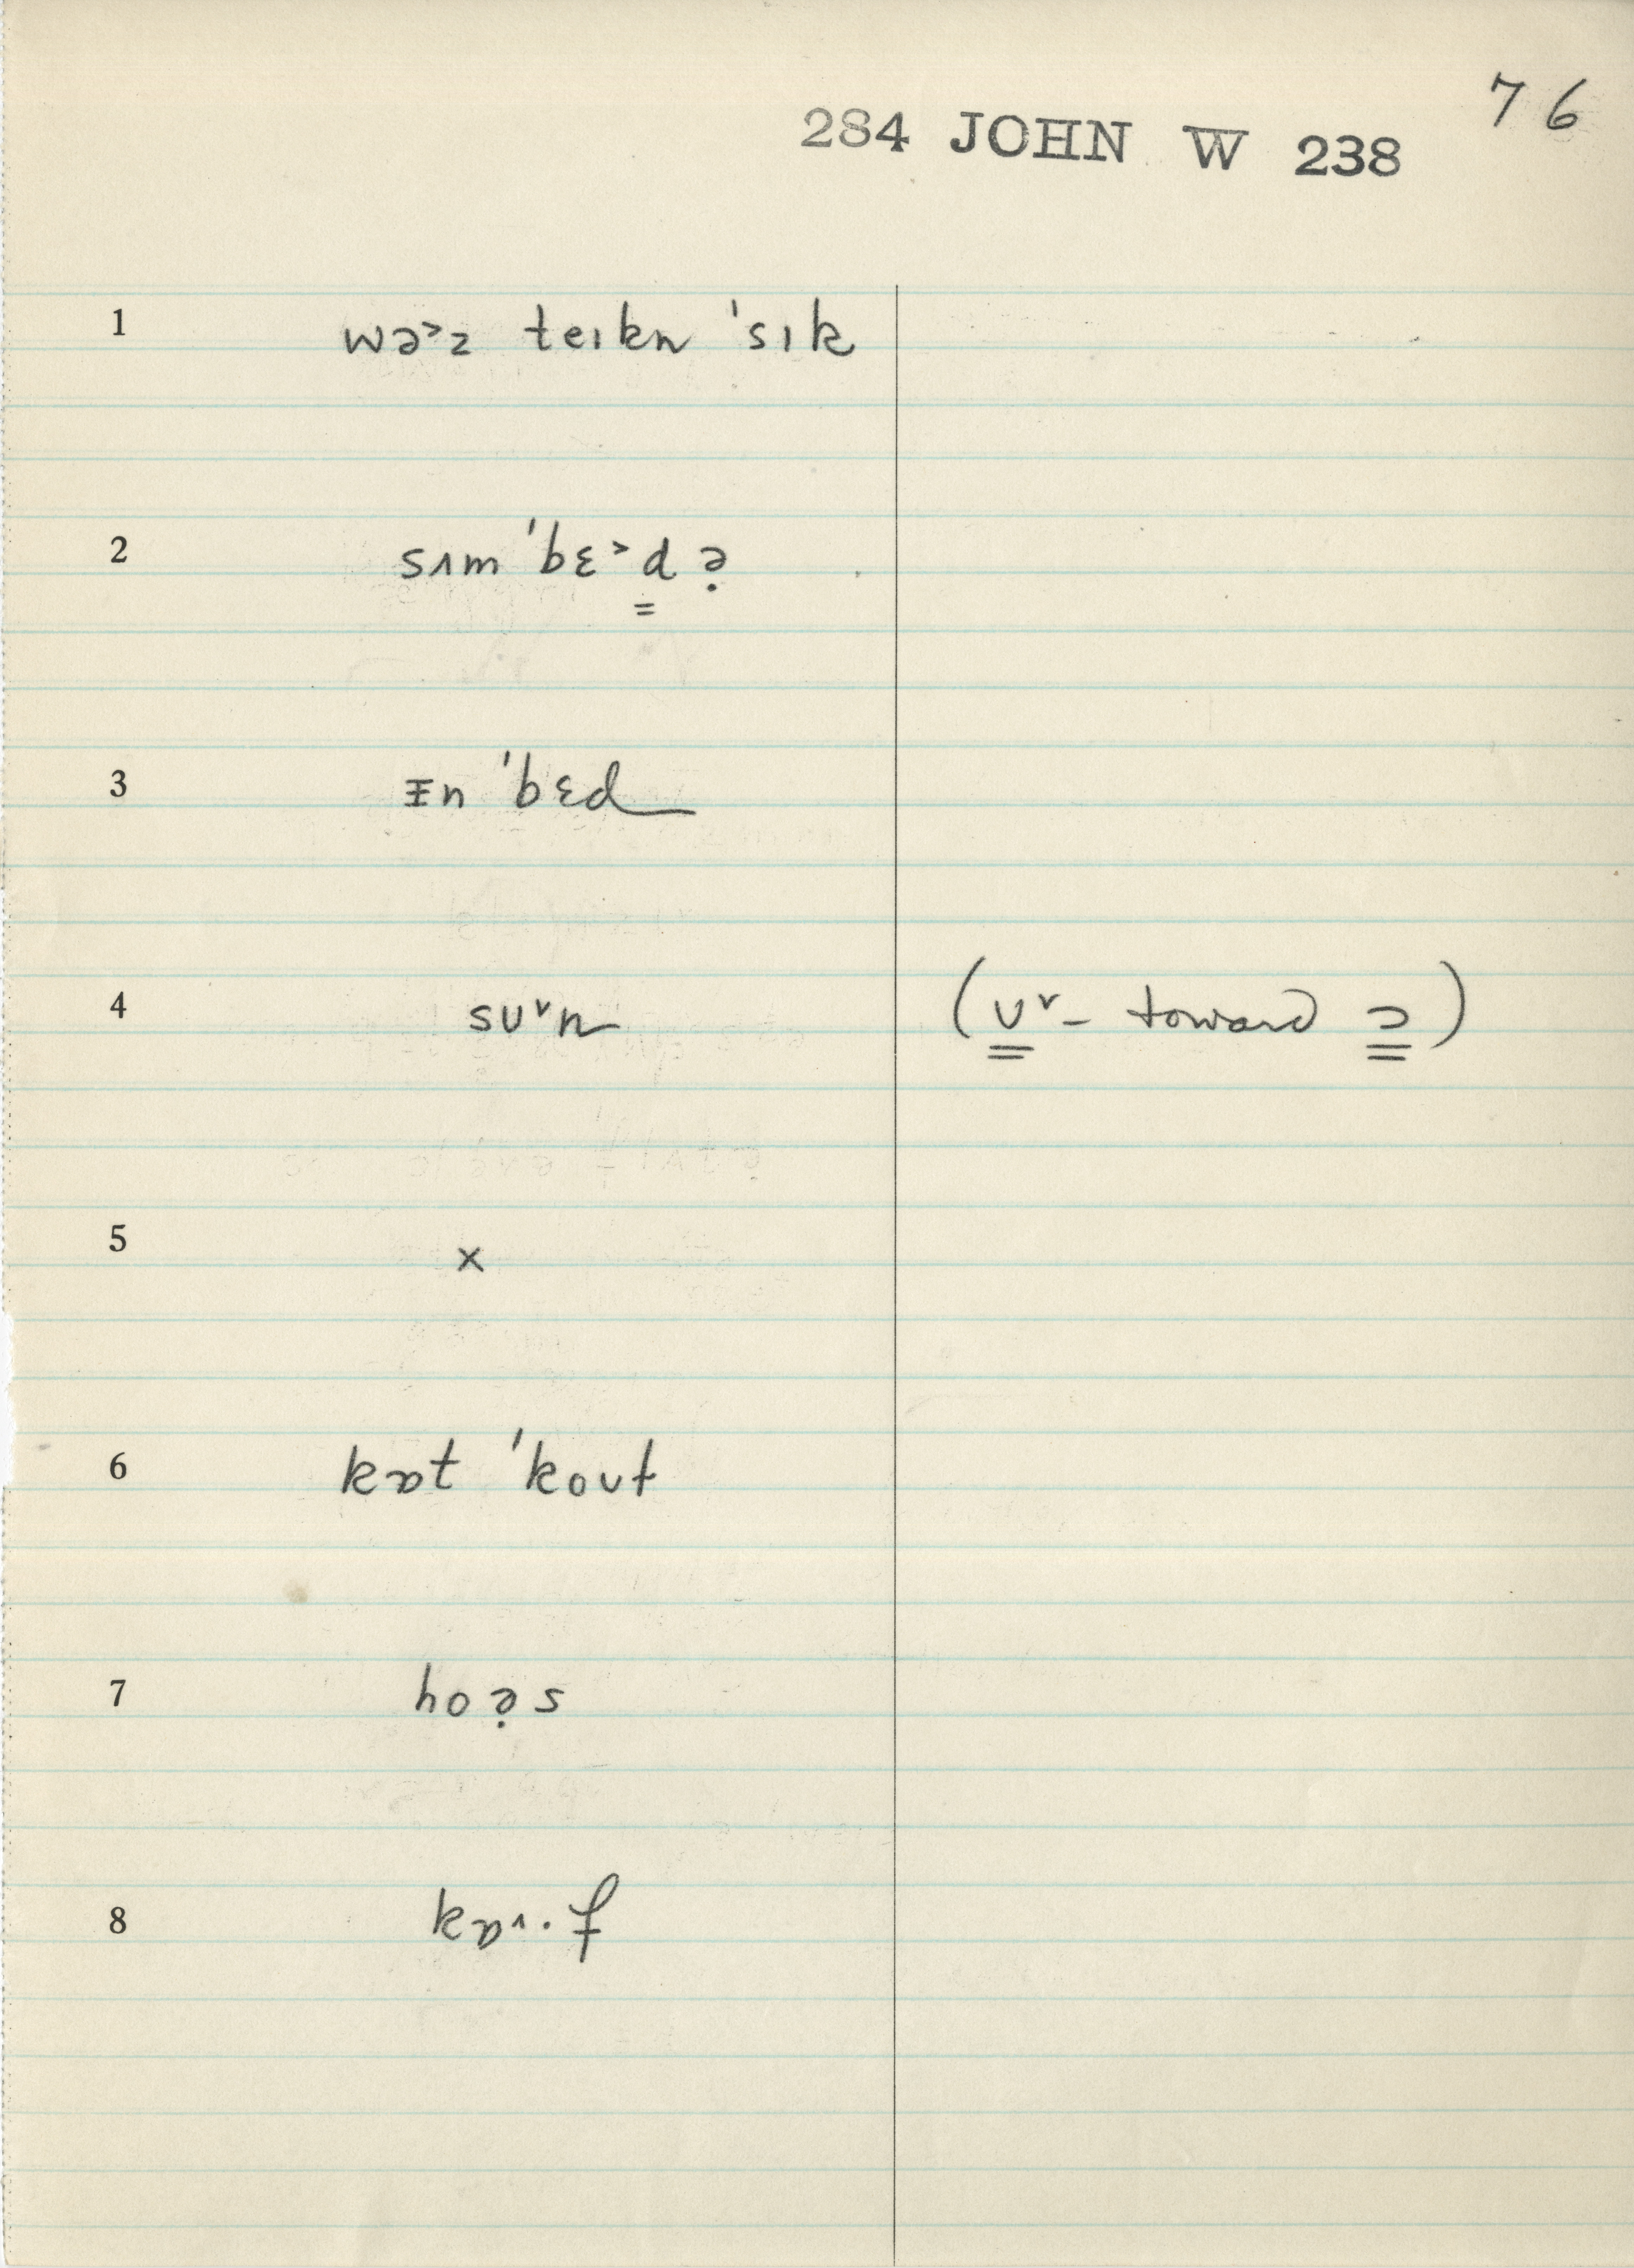 76
284 JOHN W 238
1 wə˃z teɪkn ˈsɪk
2 sʌm ˈbɛ˃d̳ ə̣
3 ᵻn ˈbɛd
4 sʊ˅n (ʊ˅ – toward ɔ)
5 ×
6 kɒt ˈkoʊt
7 hoə̣s
8 kɒ˄·f